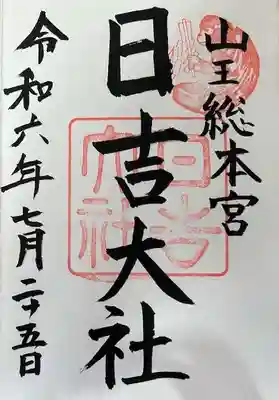 山王総本宮
日吉大社
日吉大社
令和六年七月二十五日